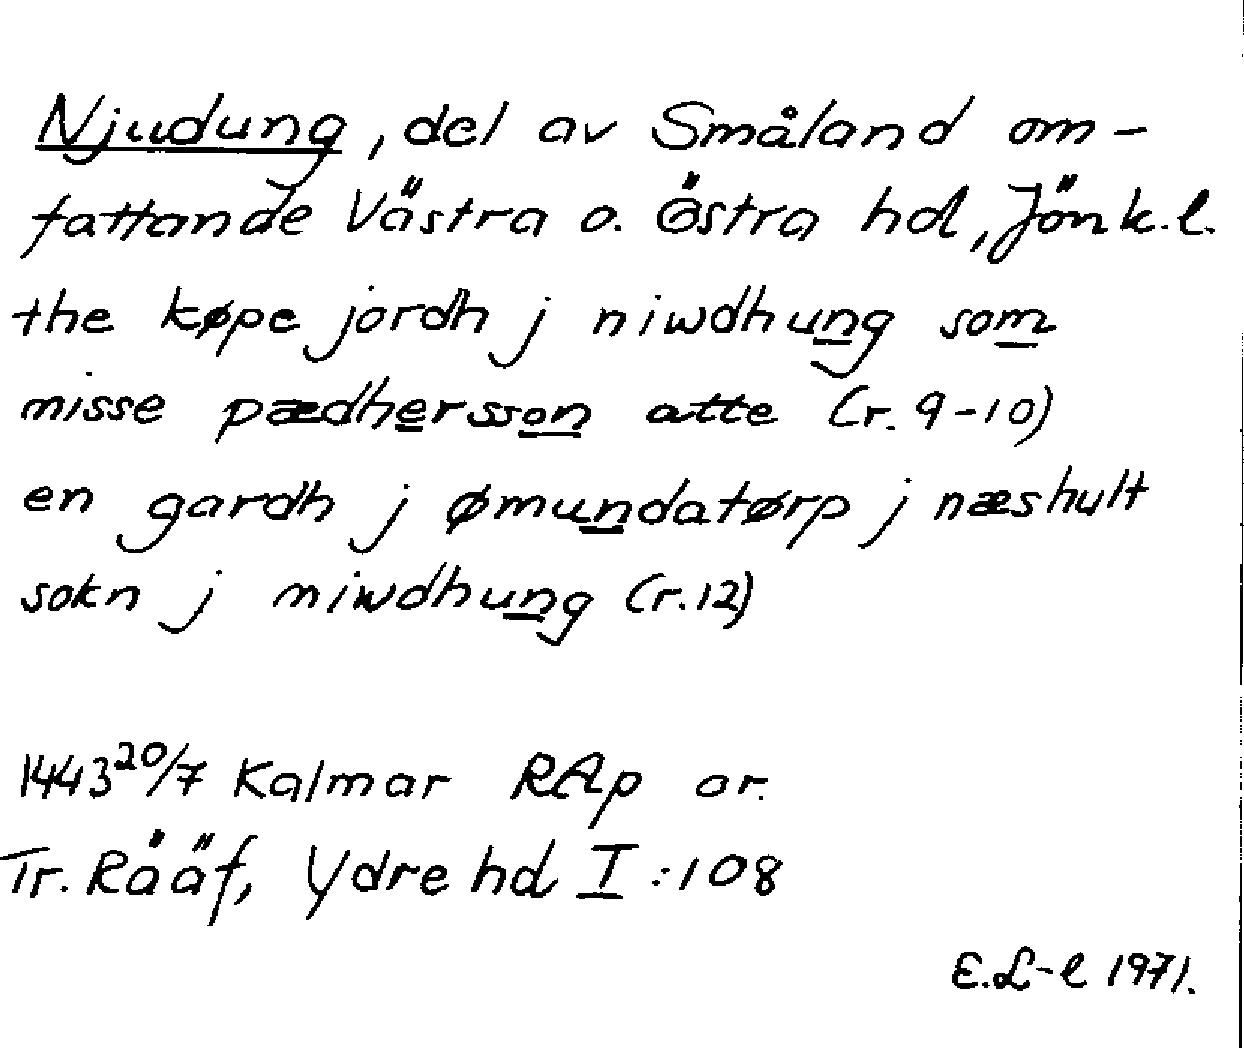 Njudung, del av Småland om-
fattande Västra o. Östra hd, Jönk.l.
the køpe jordh j niwdhung som
misse pædhersson atte (r. 9-10)
en gardh j ømundatørp j næshult
sokn j miwdhung (r.12)
1443 20/7 Kalmar RAp or.
Tr. Rääf, Ydre hd I:108
E.L-l 1971.